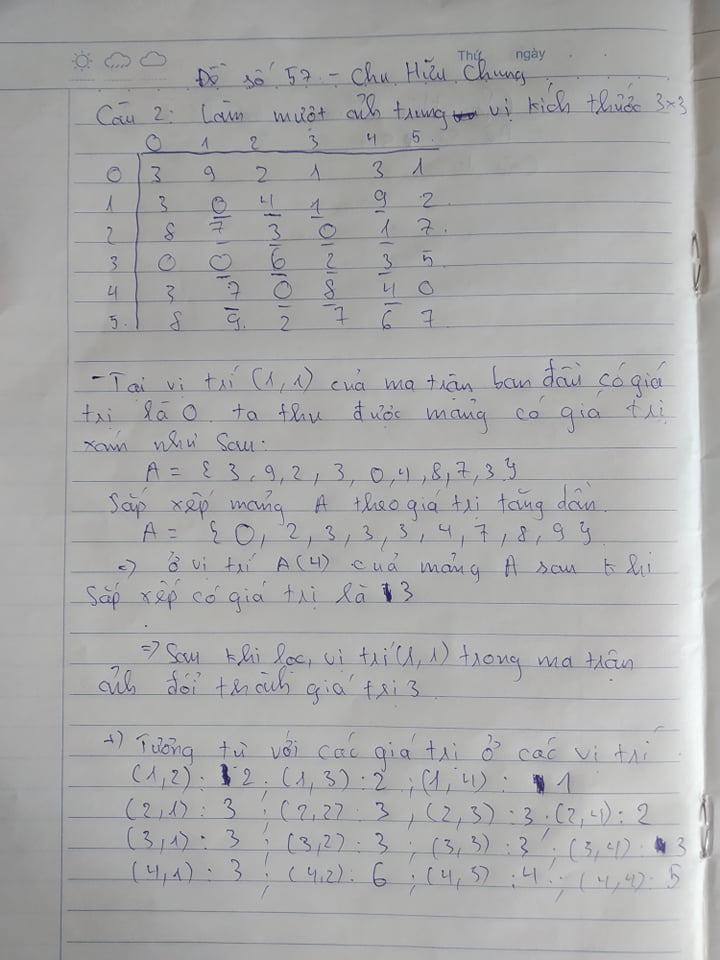 Thứ ngày
Đề số 57 - Chu Hữu Chung
Câu 2: Làm mượt ảnh trung vị kích thước 3×3
0 1 2 3 4 5
0 3 9 2 1 3 1
1 3 0 4 1 9 2
2 8 7 3 0 1 7
3 0 0 6 2 3 5
4 3 7 0 8 4 0
5. 8 9. 2 7 6 7
- Tại vị trí (1,1) của ma trận ban đầu có giá
trị là 0. ta thu được mảng có giá trị
xám như sau:
A = { 3, 9, 2, 3, 0, 4, 8, 7, 3 }
Sắp xếp mảng A theo giá trị tăng dần.
A = { 0, 2, 3, 3, 3, 4, 7, 8, 9 }
=> ở vị trí A(4) của mảng A sau khi
sắp xếp có giá trị là 3
=> Sau khi lọc, vị trí (1,1) trong ma trận
ảnh đổi thành giá trị 3
+) Tương tự với các giá trị ở các vị trí
(1,2) : 2 ; (1,3) : 2 ; (1,4) : 1
(2,1) : 3 ; (2,2) : 3 , (2,3) : 3 . (2,4) : 2
(3,1) : 3 ; (3,2) : 3 ; (3,3) : 3 ; (3,4) . 3
(4,1) : 3 ; (4,2) : 6 ; (4,3) : 4 ; (4,4) : 5